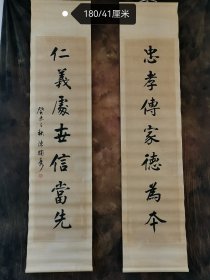 180/41厘米
忠孝傳家德為本
仁義處世信當先